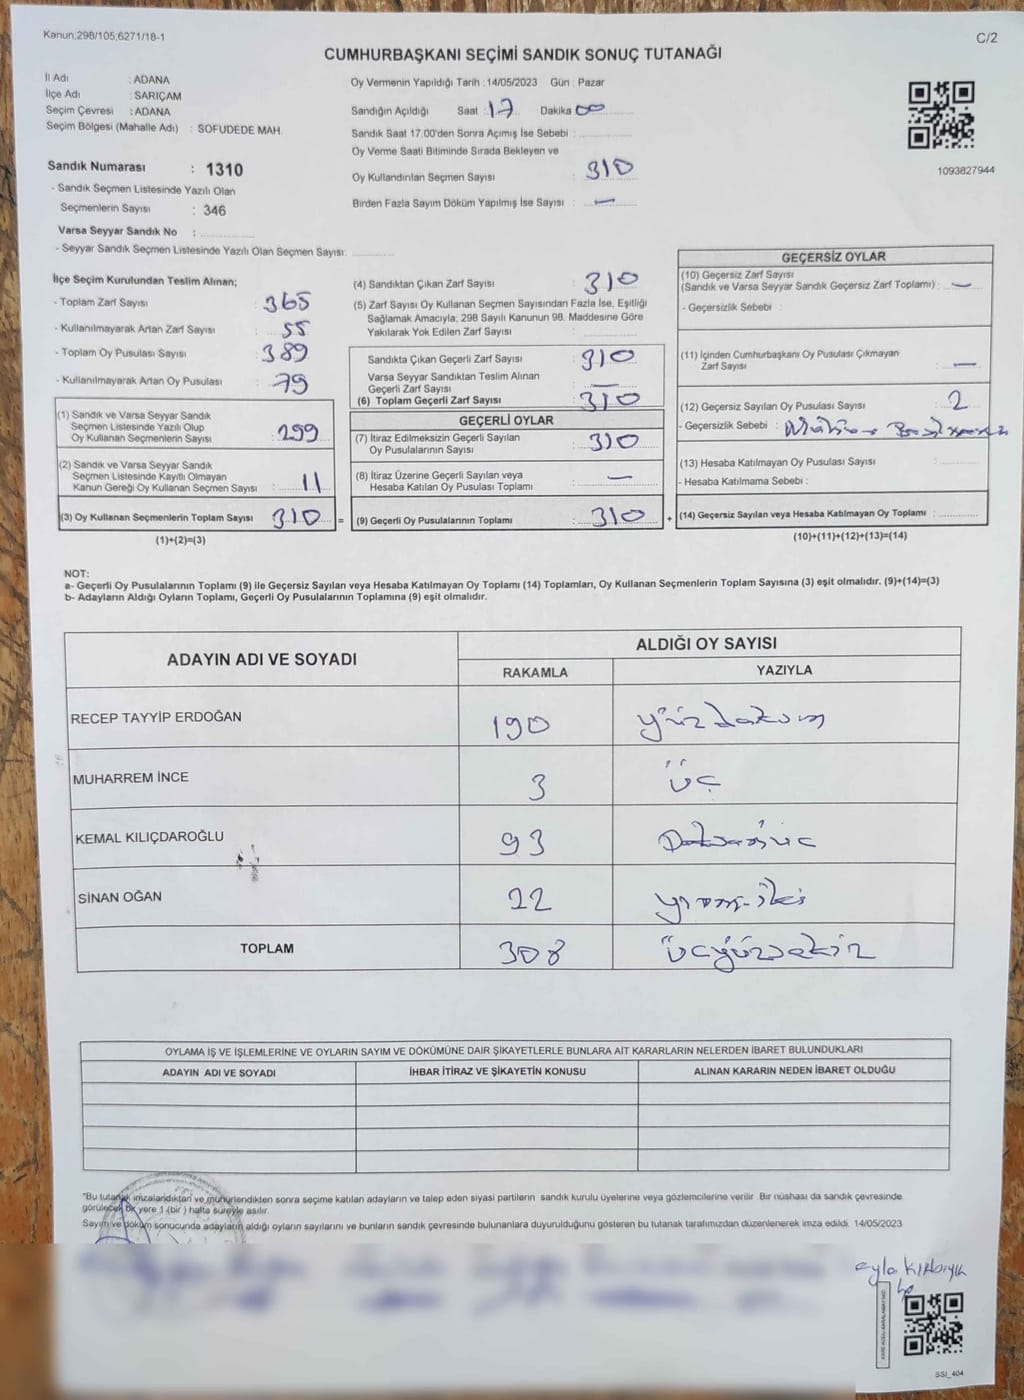 Kanun,298/105,6271/18-1
C/2
CUMHURBAŞKANI SEÇİMİ SANDIK SONUÇ TUTANAĞI
İl Adı : ADANA
İlçe Adı : SARIÇAM
Seçim Çevresi : ADANA
Seçim Bölgesi (Mahalle Adı) : SOFUDEDE MAH.
Oy Vermenin Yapıldığı Tarih : 14/05/2023 Gün : Pazar
Sandığın Açıldığı Saat : 17 Dakika : 00
Sandık Saat 17.00'den Sonra Açımış İse Sebebi :
Oy Verme Saati Bitiminde Sırada Bekleyen ve
Oy Kullandırılan Seçmen Sayısı : 310
Birden Fazla Sayım Döküm Yapılmış İse Sayısı : —
1093827944
Sandık Numarası : 1310
- Sandık Seçmen Listesinde Yazılı Olan
Seçmenlerin Sayısı : 346
Varsa Seyyar Sandık No :
- Seyyar Sandık Seçmen Listesinde Yazılı Olan Seçmen Sayısı:
İlçe Seçim Kurulundan Teslim Alınan;
- Toplam Zarf Sayısı : 365
- Kullanılmayarak Artan Zarf Sayısı : 55
- Toplam Oy Pusulası Sayısı : 389
- Kullanılmayarak Artan Oy Pusulası : 79
(1) Sandık ve Varsa Seyyar Sandık
Seçmen Listesinde Yazılı Olup
Oy Kullanan Seçmenlerin Sayısı : 299
(2) Sandık ve Varsa Seyyar Sandık
Seçmen Listesinde Kayıtlı Olmayan
Kanun Gereği Oy Kullanan Seçmen Sayısı : 11
(3) Oy Kullanan Seçmenlerin Toplam Sayısı 310 =
(1)+(2)=(3)
(4) Sandıktan Çıkan Zarf Sayısı : 310
(5) Zarf Sayısı Oy Kullanan Seçmen Sayısından Fazla İse, Eşitliği
Sağlamak Amacıyla; 298 Sayılı Kanunun 98. Maddesine Göre
Yakılarak Yok Edilen Zarf Sayısı :
Sandıkta Çıkan Geçerli Zarf Sayısı : 310
Varsa Seyyar Sandıktan Teslim Alınan
Geçerli Zarf Sayısı : —
(6) Toplam Geçerli Zarf Sayısı : 310
GEÇERLİ OYLAR
(7) İtiraz Edilmeksizin Geçerli Sayılan
Oy Pusulalarının Sayısı : 310
(8) İtiraz Üzerine Geçerli Sayılan veya
Hesaba Katılan Oy Pusulası Toplamı : —
(9) Geçerli Oy Pusulalarının Toplamı : 310 +
GEÇERSİZ OYLAR
(10) Geçersiz Zarf Sayısı
(Sandık ve Varsa Seyyar Sandık Geçersiz Zarf Toplamı) : —
- Geçersizlik Sebebi :
(11) İçinden Cumhurbaşkanı Oy Pusulası Çıkmayan
Zarf Sayısı : —
(12) Geçersiz Sayılan Oy Pusulası Sayısı : 2
- Geçersizlik Sebebi :
(13) Hesaba Katılmayan Oy Pusulası Sayısı :
- Hesaba Katılmama Sebebi :
(14) Geçersiz Sayılan veya Hesaba Katılmayan Oy Toplamı :
(10)+(11)+(12)+(13)=(14)
NOT:
a- Geçerli Oy Pusulalarının Toplamı (9) ile Geçersiz Sayılan veya Hesaba Katılmayan Oy Toplamı (14) Toplamları, Oy Kullanan Seçmenlerin Toplam Sayısına (3) eşit olmalıdır. (9)+(14)=(3)
b- Adayların Aldığı Oyların Toplamı, Geçerli Oy Pusulalarının Toplamına (9) eşit olmalıdır.
ADAYIN ADI VE SOYADI ALDIĞI OY SAYISI
RAKAMLA YAZIYLA
RECEP TAYYİP ERDOĞAN 190 yüzdoksan
MUHARREM İNCE 3 üç
KEMAL KILIÇDAROĞLU 93 Doksanüç
SİNAN OĞAN 22 yirmi-iki
TOPLAM 308 üçyüzsekiz
OYLAMA İŞ VE İŞLEMLERİNE VE OYLARIN SAYIM VE DÖKÜMÜNE DAİR ŞİKAYETLERLE BUNLARA AİT KARARLARIN NELERDEN İBARET BULUNDUKLARI
ADAYIN ADI VE SOYADI İHBAR İTİRAZ VE ŞİKAYETİN KONUSU ALINAN KARARIN NEDEN İBARET OLDUĞU
"Bu tutanak imzalandıktan ve mühürlendikten sonra seçime katılan adayların ve talep eden siyasi partilerin sandık kurulu üyelerine veya gözlemcilerine verilir. Bir nüshası da sandık çevresinde
görülecek bir yere 1 (bir) hafta süreyle asılır.
Sayım ve döküm sonucunda adayların aldığı oyların sayılarını ve bunların sandık çevresinde bulunanlara duyurulduğunu gösteren bu tutanak tarafımızdan düzenlenerek imza edildi. 14/05/2023
SSI_404